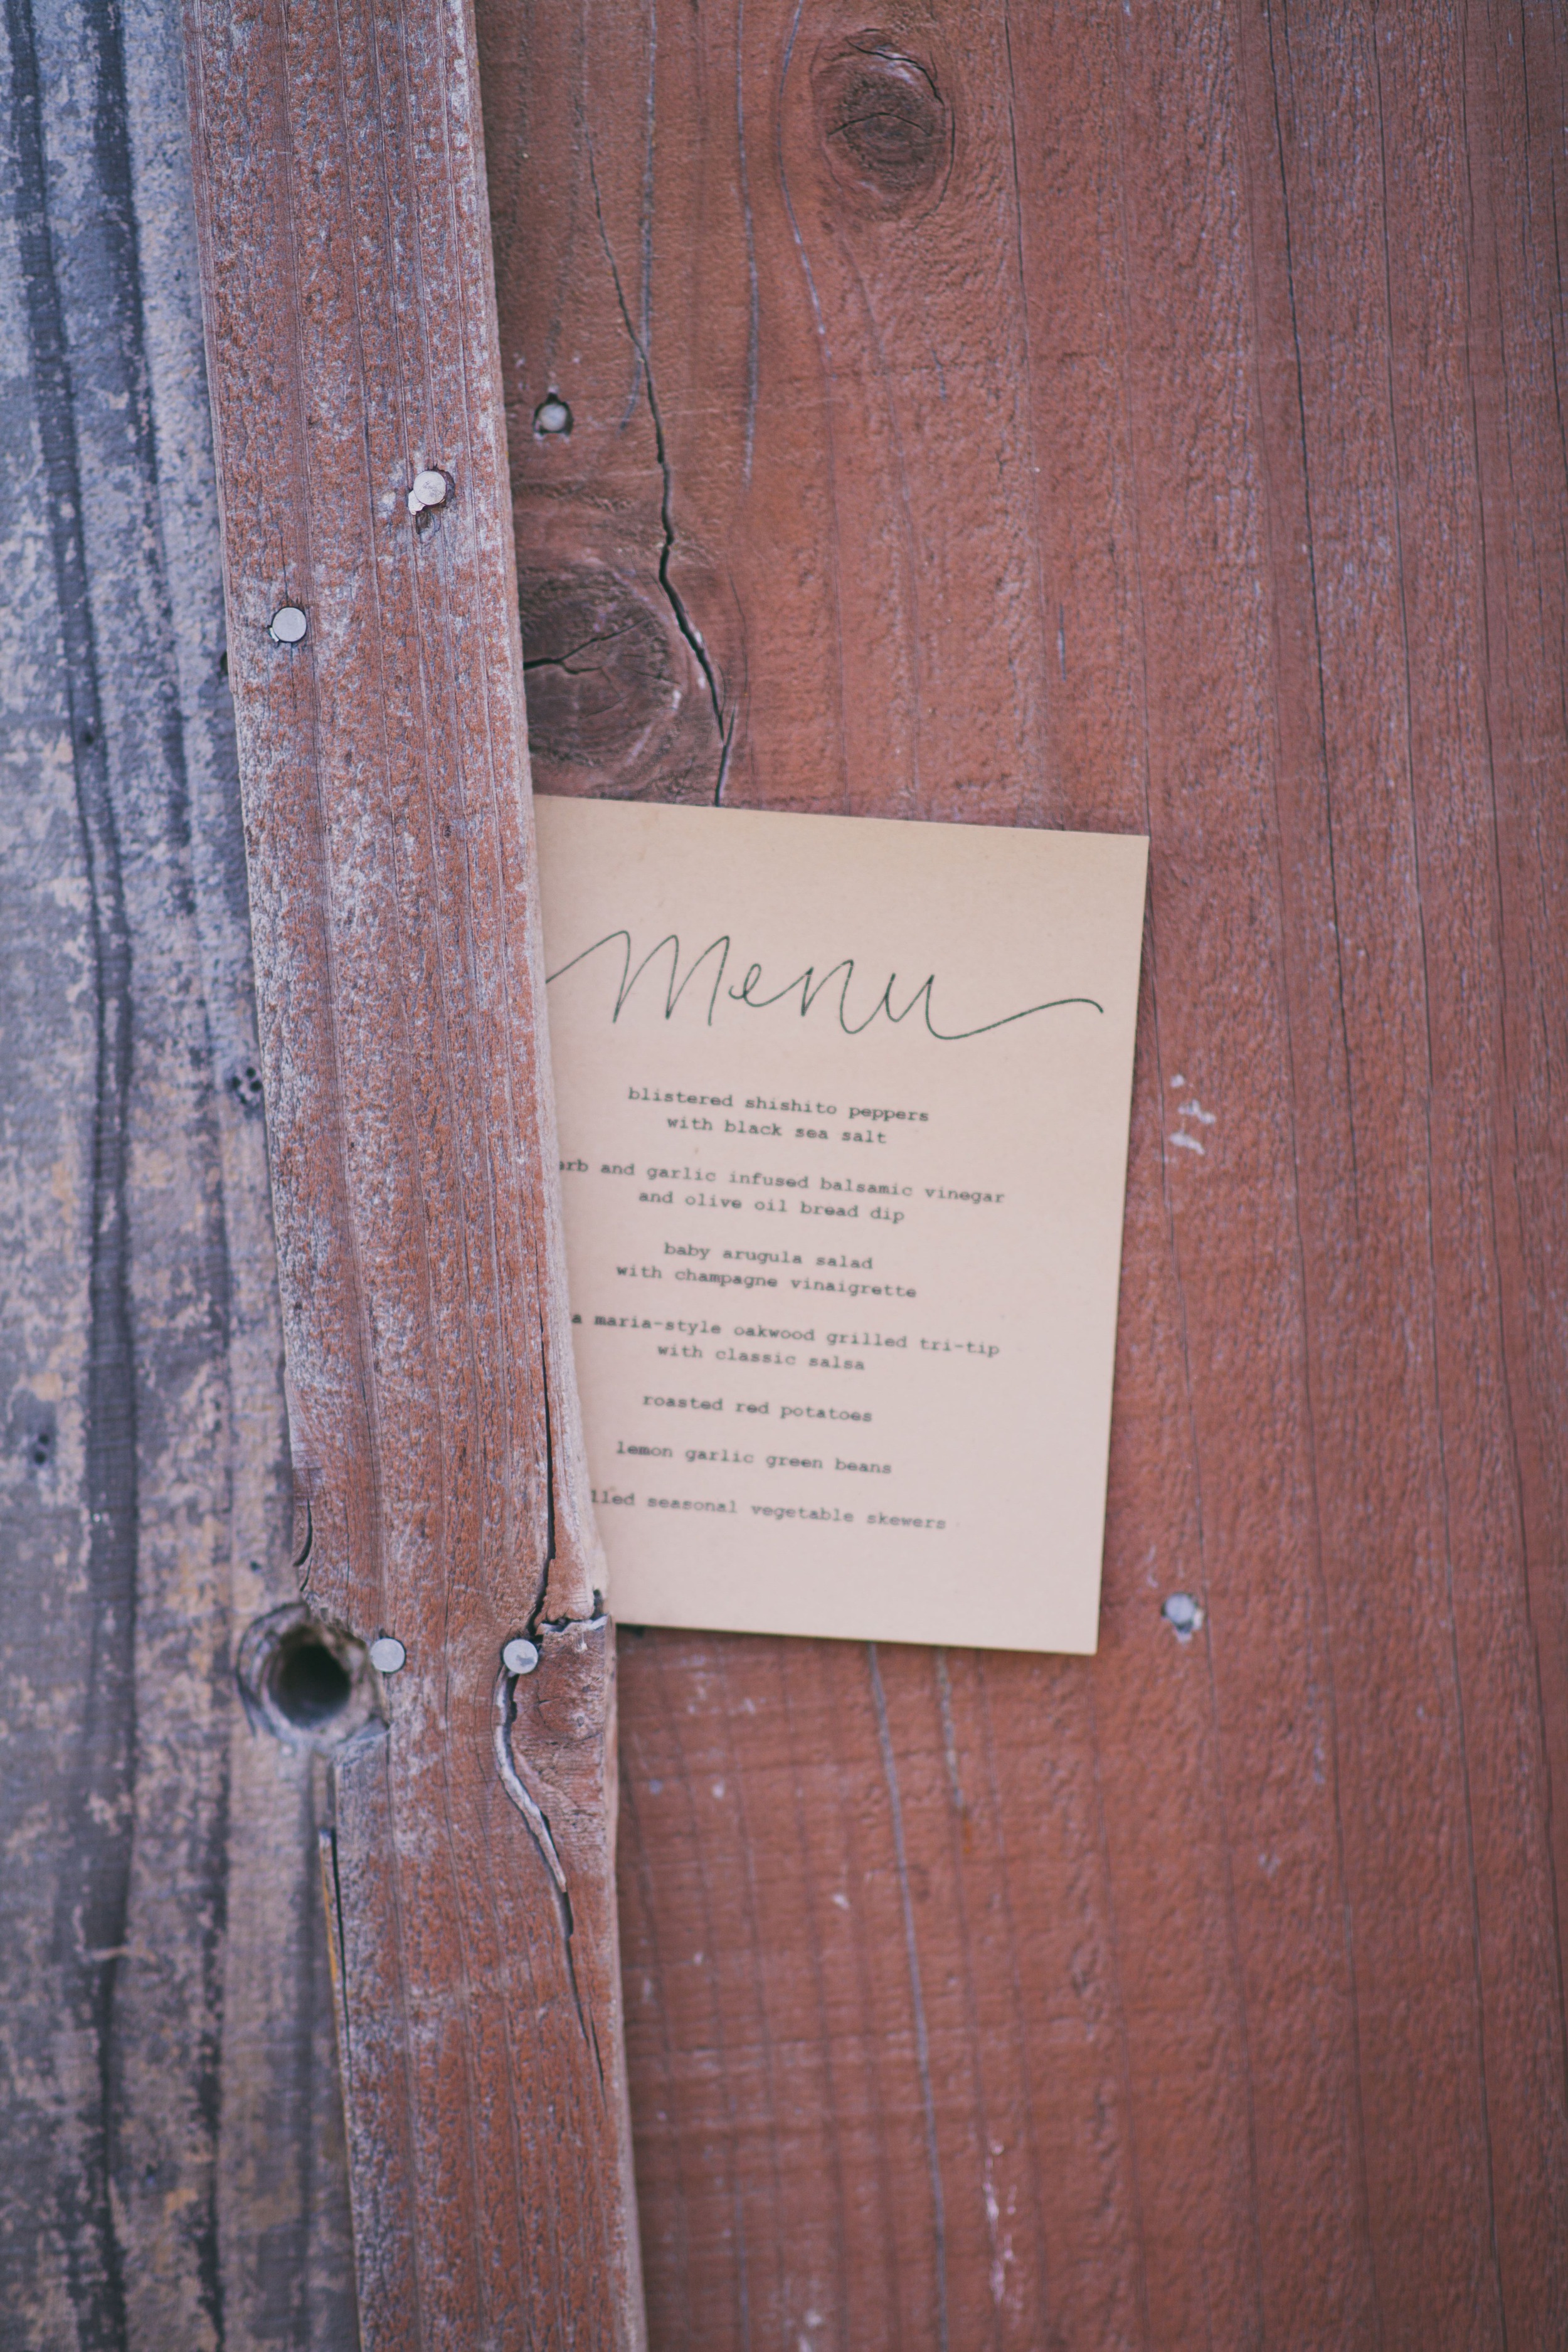 Menu
blistered shishito peppers
with black sea salt
erb and garlic infused balsamic vinegar
and olive oil bread dip
baby arugula salad
with champagne vinaigrette
a maria-style oakwood grilled tri-tip
with classic salsa
roasted red potatoes
lemon garlic green beans
lled seasonal vegetable skewers